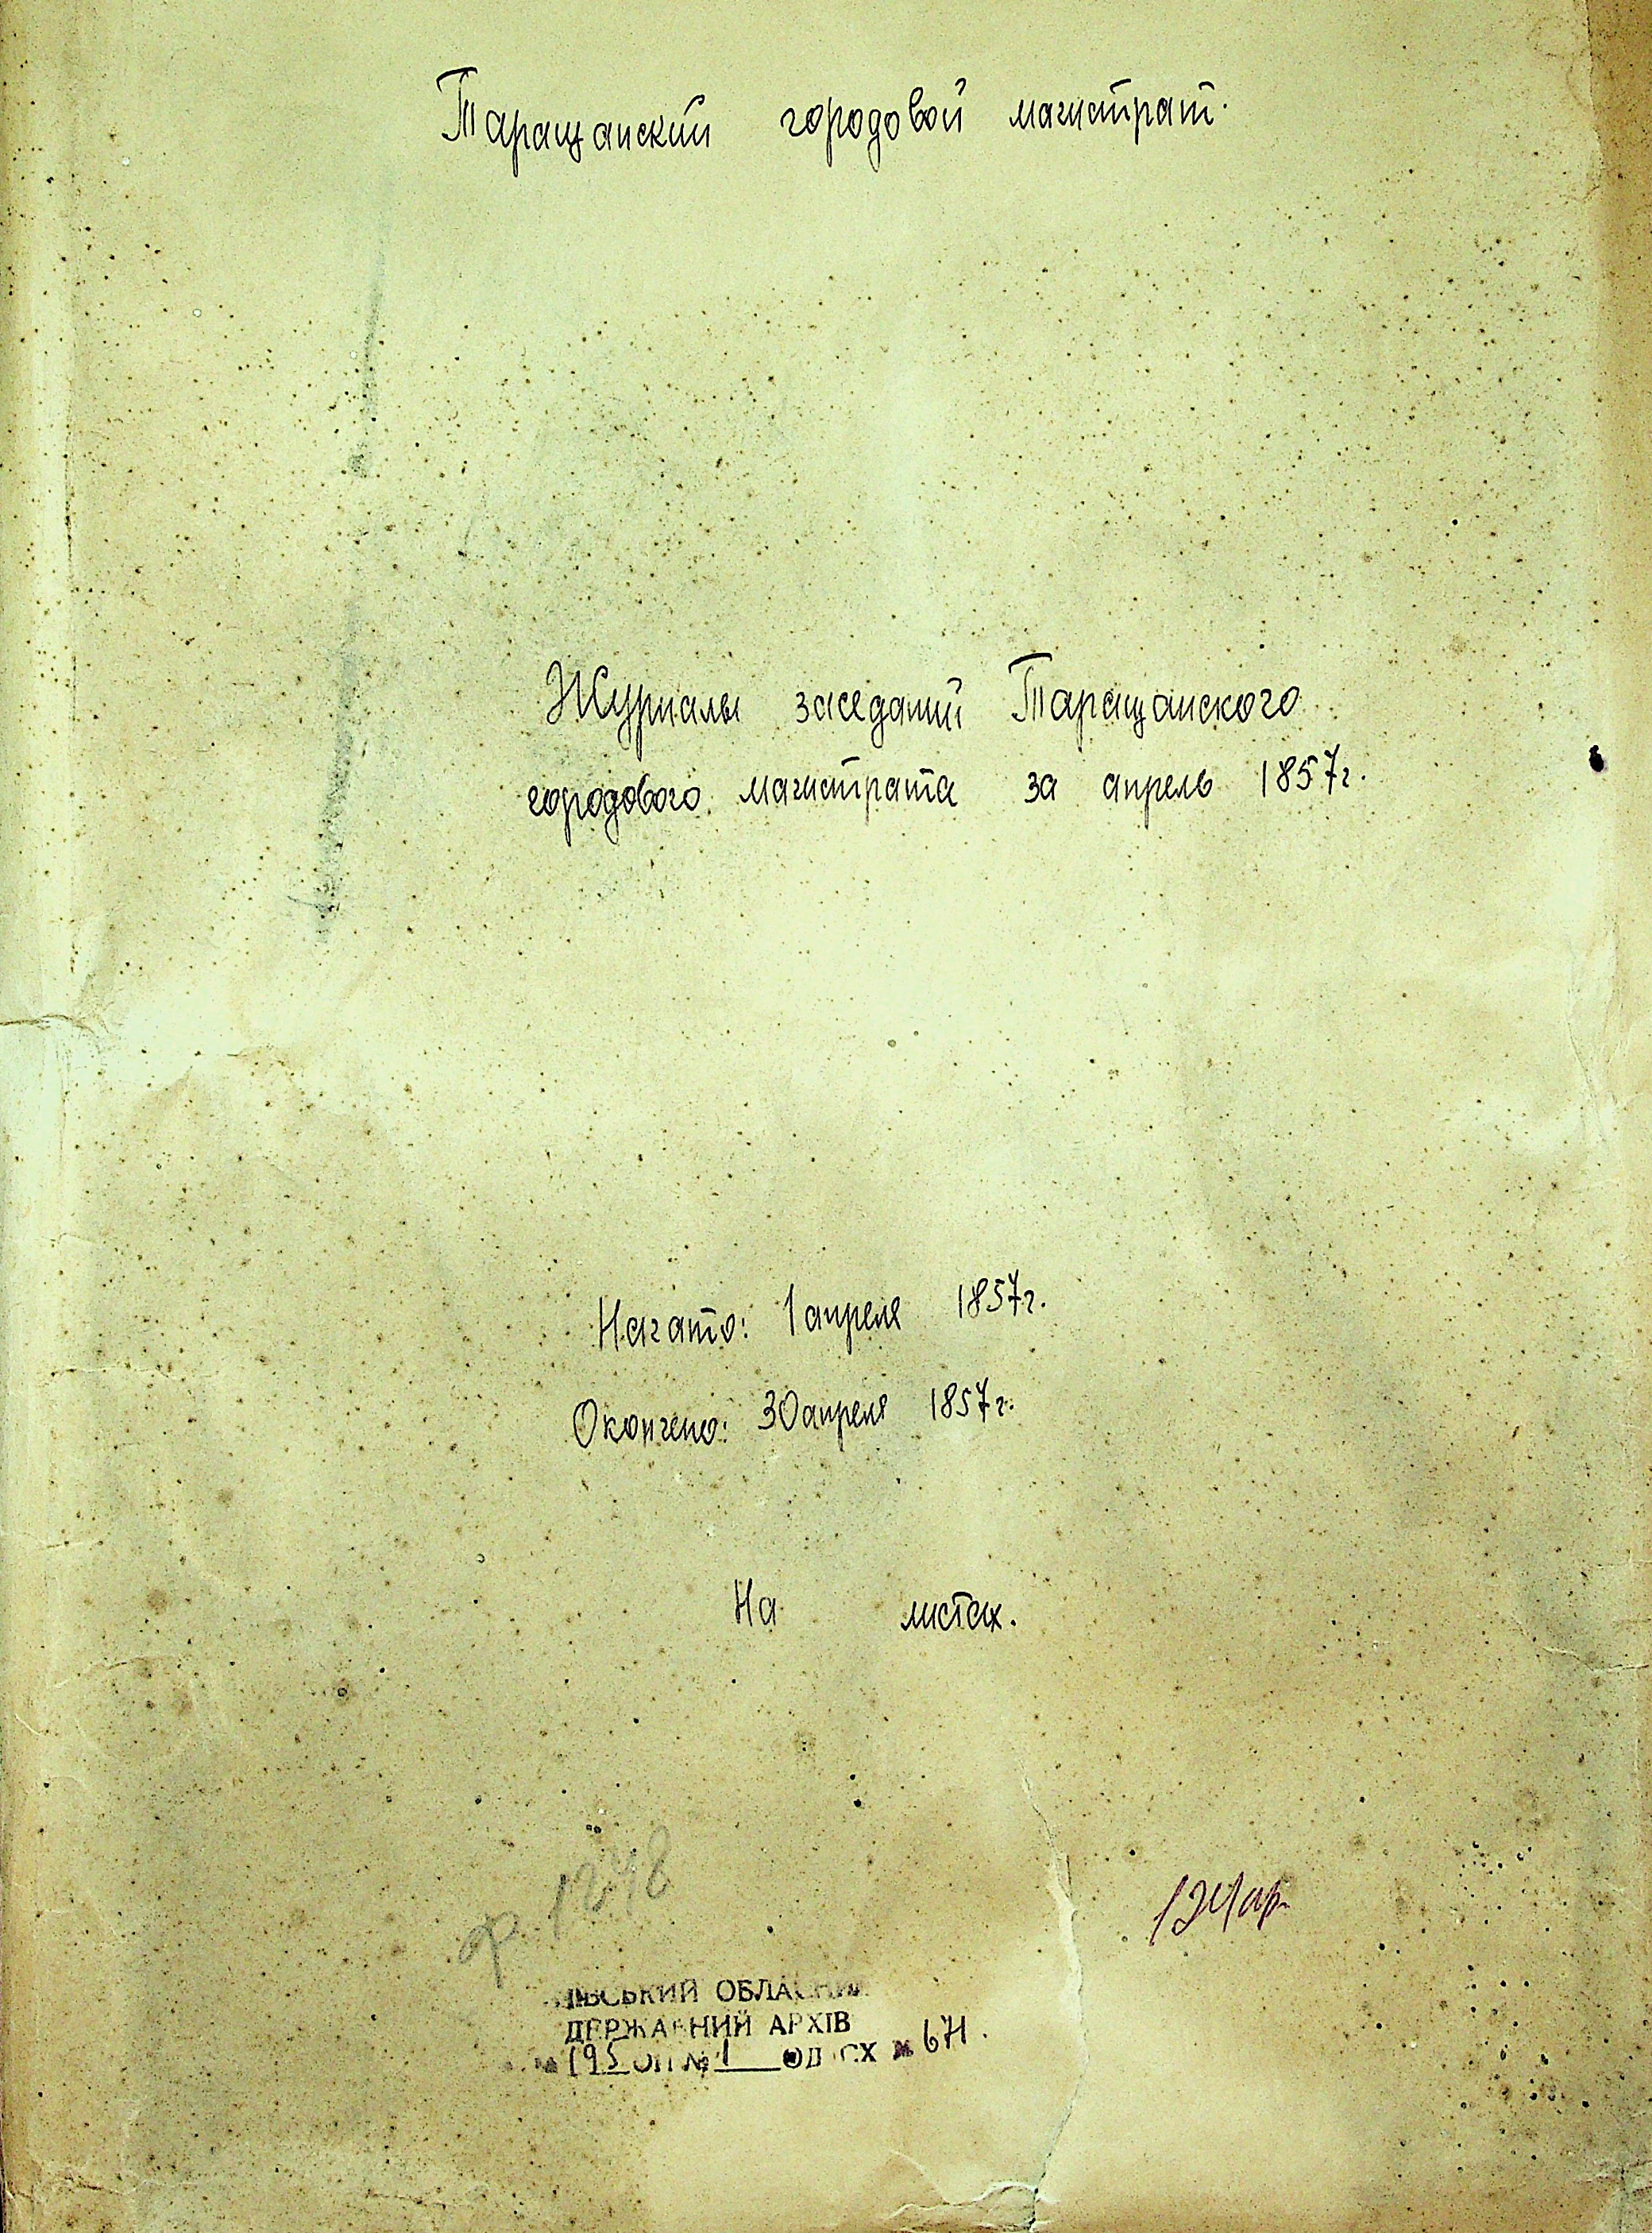 Таращанский городовой магистрат.
Журналы заседаний Таращанского
городового магистрата за апрель 1857г.
Начато: 1 апреля 1857г.
Окончено: 30 апреля 1857г.
На листах.
ф. 1248
ОБЛАСНИЙ
ДЕРЖАВНИЙ АРХІВ
195 ОП № 1 ОД. СХ № 671.